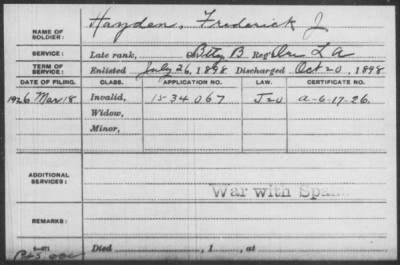 NAME OF SOLDIER: Hayden, Frederick J
SERVICE: Late rank, Batty B Reg't Ore L A
TERM OF SERVICE: Enlisted July 26, 1898 Discharged Oct 20, 1898
DATE OF FILING. CLASS. APPLICATION NO. LAW. CERTIFICATE NO.
1926 Mar 18 Invalid, 15 34 067 J20 a-6-17-26.
Widow,
Minor,
ADDITIONAL SERVICES:
War with Spain
REMARKS:
Died , 1 , at